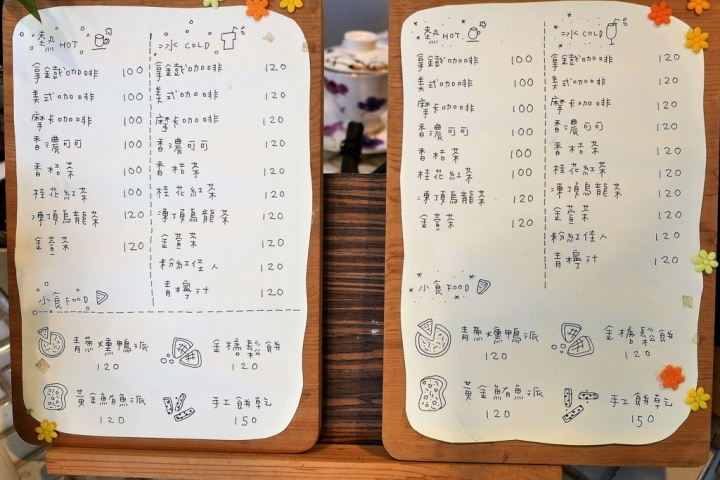 熱 HOT
拿鐵咖啡 100
美式咖啡 100
摩卡咖啡 100
香濃可可 100
香桔茶 100
桂花紅茶 100
凍頂烏龍茶 120
金萱茶 120
冰 COLD
拿鐵咖啡 120
美式咖啡 120
摩卡咖啡 120
香濃可可 120
香桔茶 120
桂花紅茶 120
凍頂烏龍茶 120
金萱茶 120
粉紅佳人 120
青檸汁 120
小食 FOOD
青蔥燻鴨派
120
金桔鬆餅
120
黃金鮪魚派
120
手工餅乾
150
熱 HOT
拿鐵咖啡 100
美式咖啡 100
摩卡咖啡 100
香濃可可 100
香桔茶 100
桂花紅茶 100
凍頂烏龍茶 120
金萱茶 120
冰 COLD
拿鐵咖啡 120
美式咖啡 120
摩卡咖啡 120
香濃可可 120
香桔茶 120
桂花紅茶 120
凍頂烏龍茶 120
金萱茶 120
粉紅佳人 120
青檸汁 120
小食 FOOD
青蔥燻鴨派
120
金桔鬆餅
120
黃金鮪魚派
120
手工餅乾
150